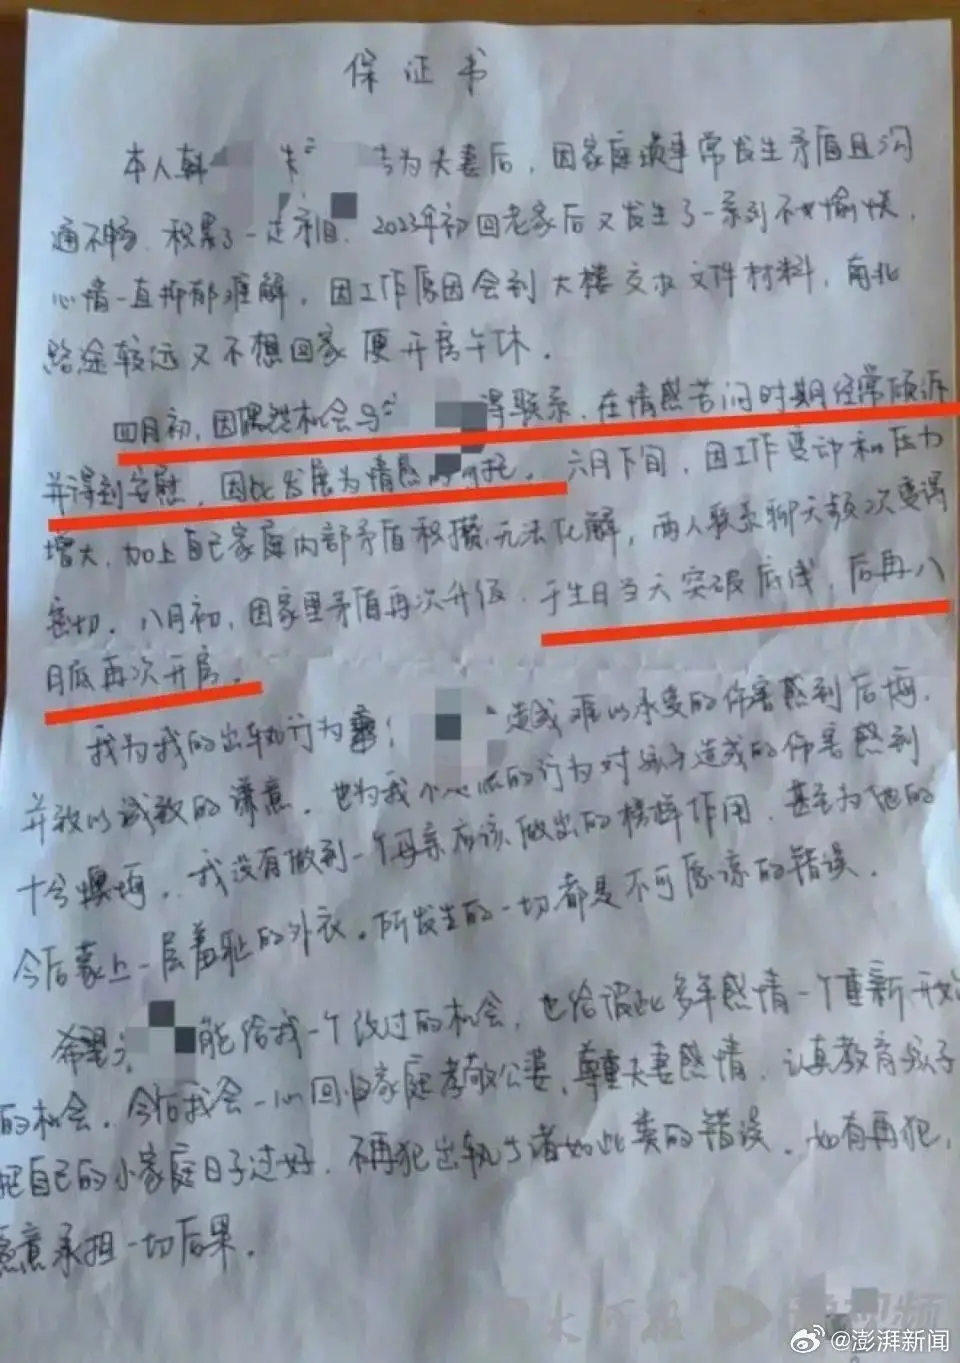 保证书
本人韩 为夫妻后，因家庭琐事常发生矛盾且沟
通不畅，积累了一定矛盾，2023年初回老家后又发生了一系列不愉快，
心情一直抑郁难解，因工作原因会到大楼交收文件材料，南北
路途较远又不想回家便开房午休。
四月初，因偶然机会与 得联系，在情感苦闷时期经常倾诉
并得到安慰，因此发展为情感的 托。六月下旬，因工作变动和压力
增大，加上自己家庭内部矛盾积攒无法化解，两人联系聊天频次变得
密切。八月初，因家里矛盾再次升级，于生日当天突破底线，后再八
月底再次开房。
我为我的出轨行为 造成难以承受的伤害感到后悔，
并致以诚致的谦意，也为我 的行为对孩子造成的伤害感到
十分懊悔。我没有做到一个母亲应该做出的榜样作用，甚至为他的
今后蒙上一层羞耻的外衣。所发生的一切都是不可原谅的错误。
希望 能给我一个改过的机会，也给彼此多年感情一个重新开始
的机会。今后我会一心回归家庭孝敬公婆，尊重夫妻感情，认真教育孩子
把自己的小家庭日子过好，不再犯出轨 诸如此类的错误，如有再犯，
愿意承担一切后果。
大河报
视频
@澎湃新闻